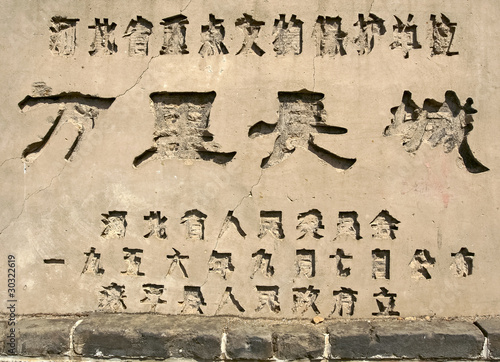 河北省重点文物保护单位
万里长城
河北省人民委员会
一九五六年九月七日公布
滦平县人民政府立
Adobe Stock | #30322619